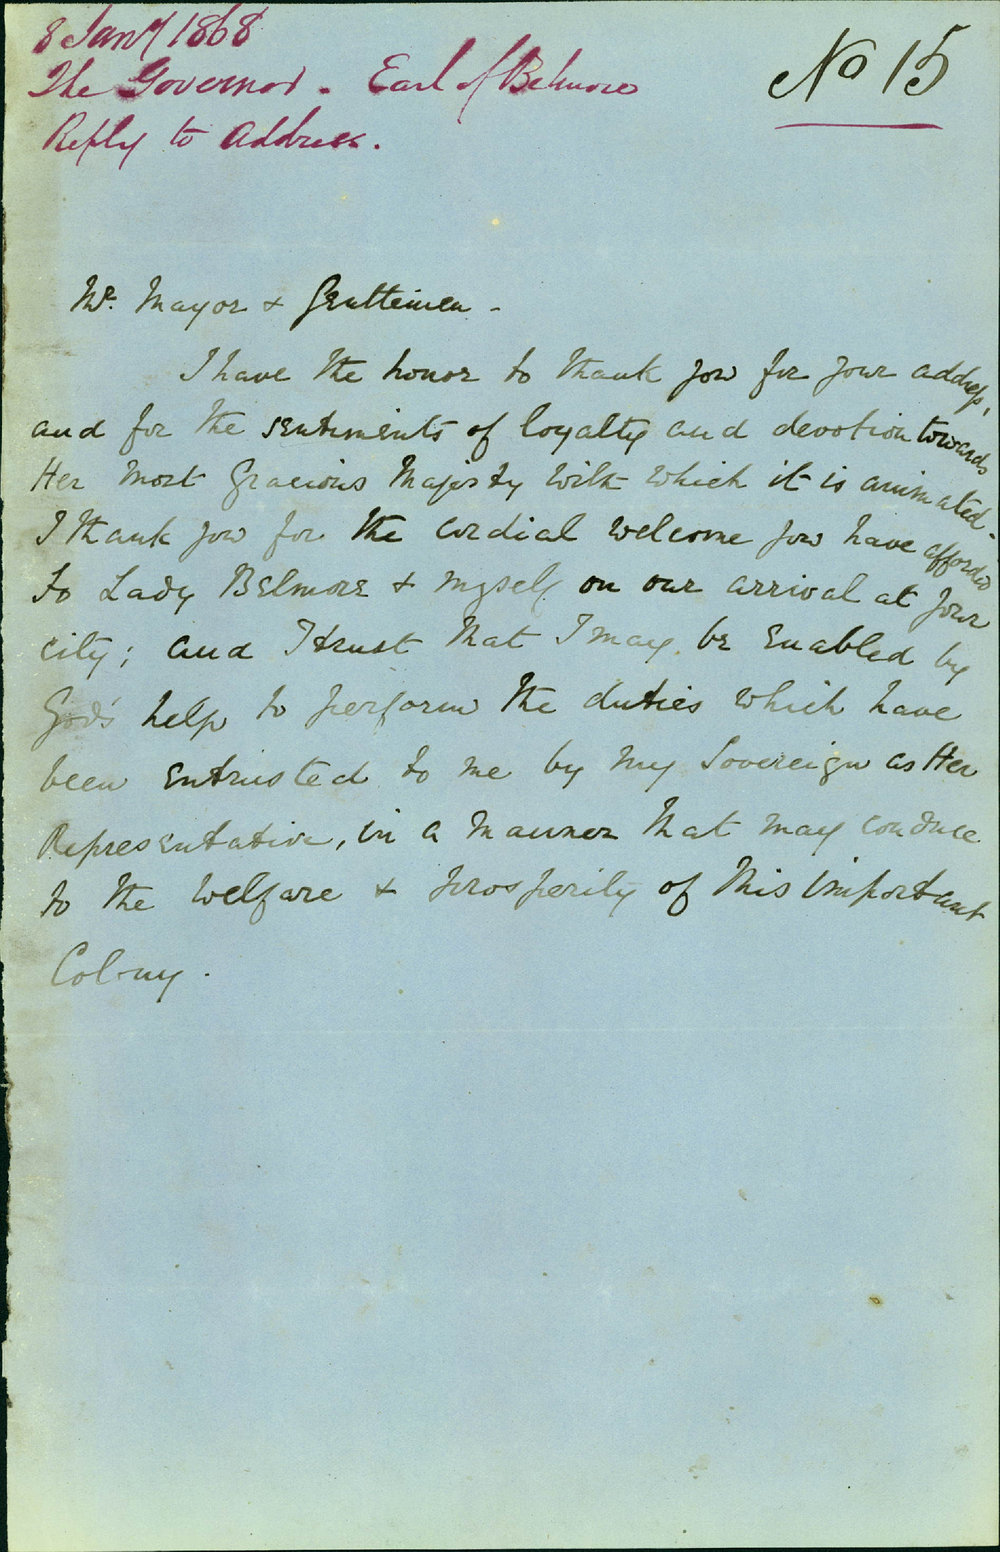 8 Jany 1868
The Governor. Earl of Belmore
Reply to Address.
No 15
Mr. Mayor & Gentlemen -
I have the honor to thank you for your address,
and for the sentiments of loyalty and devotion towards
Her Most Gracious Majesty with which it is animated.
I thank you for the cordial welcome you have afforded
to Lady Belmore & myself on our arrival at your
city; and I trust that I may be enabled by
God's help to perform the duties which have
been entrusted to me by my Sovereign as Her
Representative, in a manner that may conduce
to the welfare & prosperity of this important
Colony.